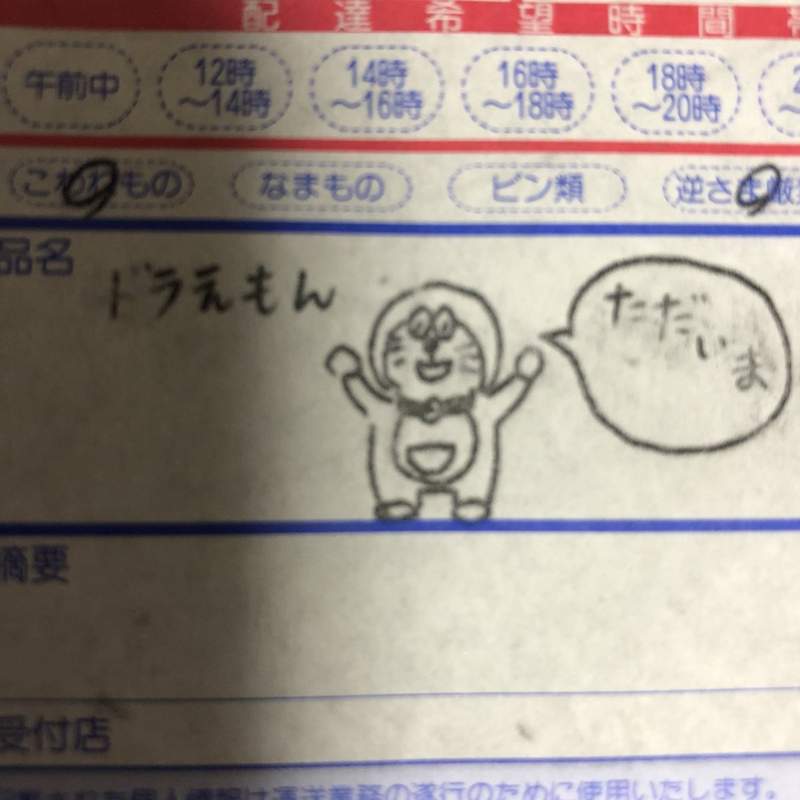 配達希望時間
午前中
12時
～14時
14時
～16時
16時
～18時
18時
～20時
こわれもの
なまもの
ビン類
逆さま厳
品名
ドラえもん
ただいま
摘要
受付店
個人情報は運送業務の遂行のために使用いたします。